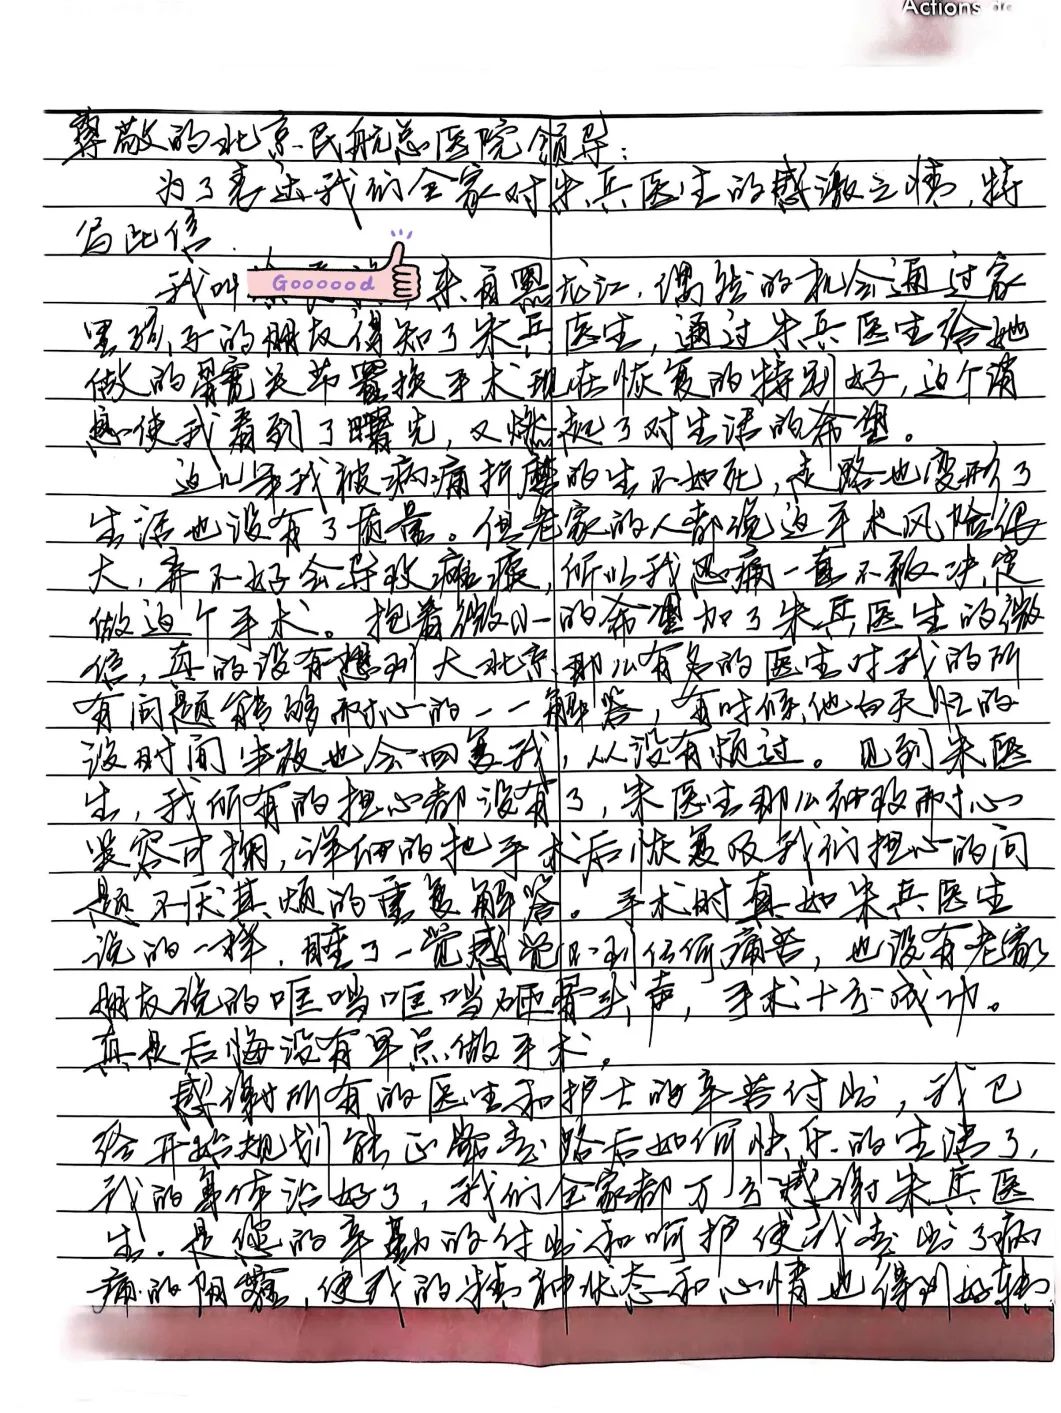 Actions
尊敬的北京民航总医院领导：
为了表达我们全家对朱兵医生的感激之情，特
写此信.
我叫 Goooood 来自黑龙江，偶然的机会通过家
里孩子的朋友得知了朱兵医生，通过朱兵医生给她
做的髋关节置换手术现在恢复的特别好，这个消
息使我看到了曙光，又燃起了对生活的希望。
这几年我被病痛折磨的生不如死，走路也变形了
生活也没有了质量。但老家的人都说这手术风险很
大，弄不好会导致瘫痪，所以我忍痛一直不敢决定
做这个手术。抱着微小的希望加了朱兵医生的微
信，真的没有想到大北京那么有名的医生对我的所
有问题能够耐心的一一解答，有时候他白天忙的
没时间半夜也会回复我，从没有烦过。见到朱医
生，我所有的担心都没有了，朱医生那么细致耐心
笑容可掬，详细的把手术后恢复及我们担心的问
题不厌其烦的重复解答。手术时真如朱兵医生
说的一样，睡了一觉感觉不到任何痛苦，也没有老家
朋友说的哐当哐当砸骨头声，手术十分成功。
真是后悔没有早点做手术。
感谢所有的医生和护士的辛苦付出，我已
经开始规划能正常走路后如何快乐的生活了，
我的身体治好了，我们全家都万分感谢朱兵医
生。是您的辛勤的付出和呵护使我走出了病
痛的阴霾，使我的精神状态和心情也得到好转